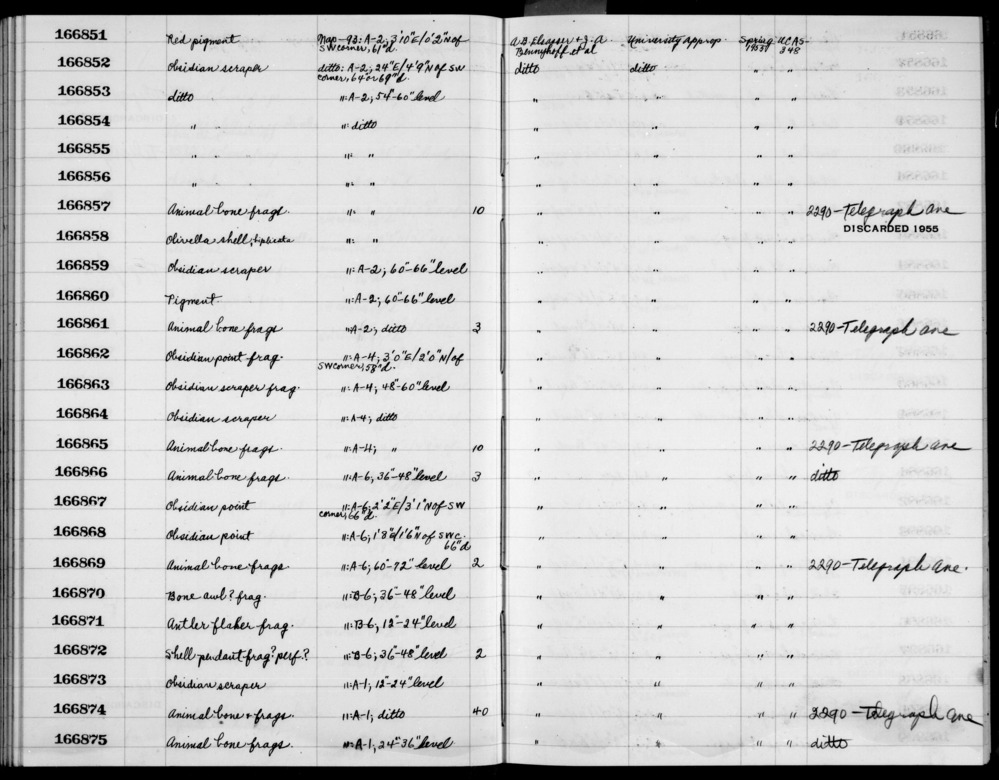 166851 Red pigment Nap-93: A-2; 3'10"E/0'2"N of SW corner, 61"d. A.B. Elsasser + J.A. Bennyhoff et al University approp. Spring 1953 UCAS-348
166852 Obsidian scraper ditto: A-2; 24"E/4'9"N of SW corner, 64" or 69"d. ditto ditto " "
166853 ditto ": A-2, 54"-60" level " " " "
166854 " ": ditto " " " "
166855 " " ": " " " " "
166856 " ": " " " " "
166857 Animal bone frags. ": " 10 " " " " 2290-Telegraph Ave
DISCARDED 1955
166858 Olivella shell; biplicata ": " " " " "
166859 Obsidian scraper ": A-2; 60"-66" level " " " "
166860 Pigment ": A-2; 60"-66" level " " " "
166861 Animal bone frags ": A-2; ditto 3 " " " " 2290-Telegraph Ave
166862 Obsidian point frag. ": A-4; 3'0"E/2'0"N/of SW corner, 58"d. " " " "
166863 Obsidian scraper frag. ": A-4; 48"-60" level " " " "
166864 Obsidian scraper ": A-4; ditto " " " "
166865 Animal bone frags. ": A-4; " 10 " " " " 2290-Telegraph Ave
166866 Animal bone frags. ": A-6, 36"-48" level 3 " " " " ditto
166867 Obsidian point ": A-6; 2'2"E/3'1"N of SW corner, 66"d. " " " "
166868 Obsidian point ": A-6; 1'8"E/1'6"N of SW C. 66"d " " " "
166869 Animal bone frags ": A-6; 60"-72" level 2 " " " " 2290-Telegraph Ave.
166870 Bone awl? frag. ": B-6; 36"-48" level " " " "
166871 Antler flaker frag. ": B-6, 12"-24" level " " " "
166872 Shell pendant frag? perf.? ": B-6; 36"-48" level 2 " " " "
166873 Obsidian scraper ": A-1; 12"-24" level " " " "
166874 Animal bone + frags. ": A-1; ditto 40 " " " " 2290-Telegraph Ave
166875 Animal bone frags. ": A-1, 24"-36" level " " " " ditto